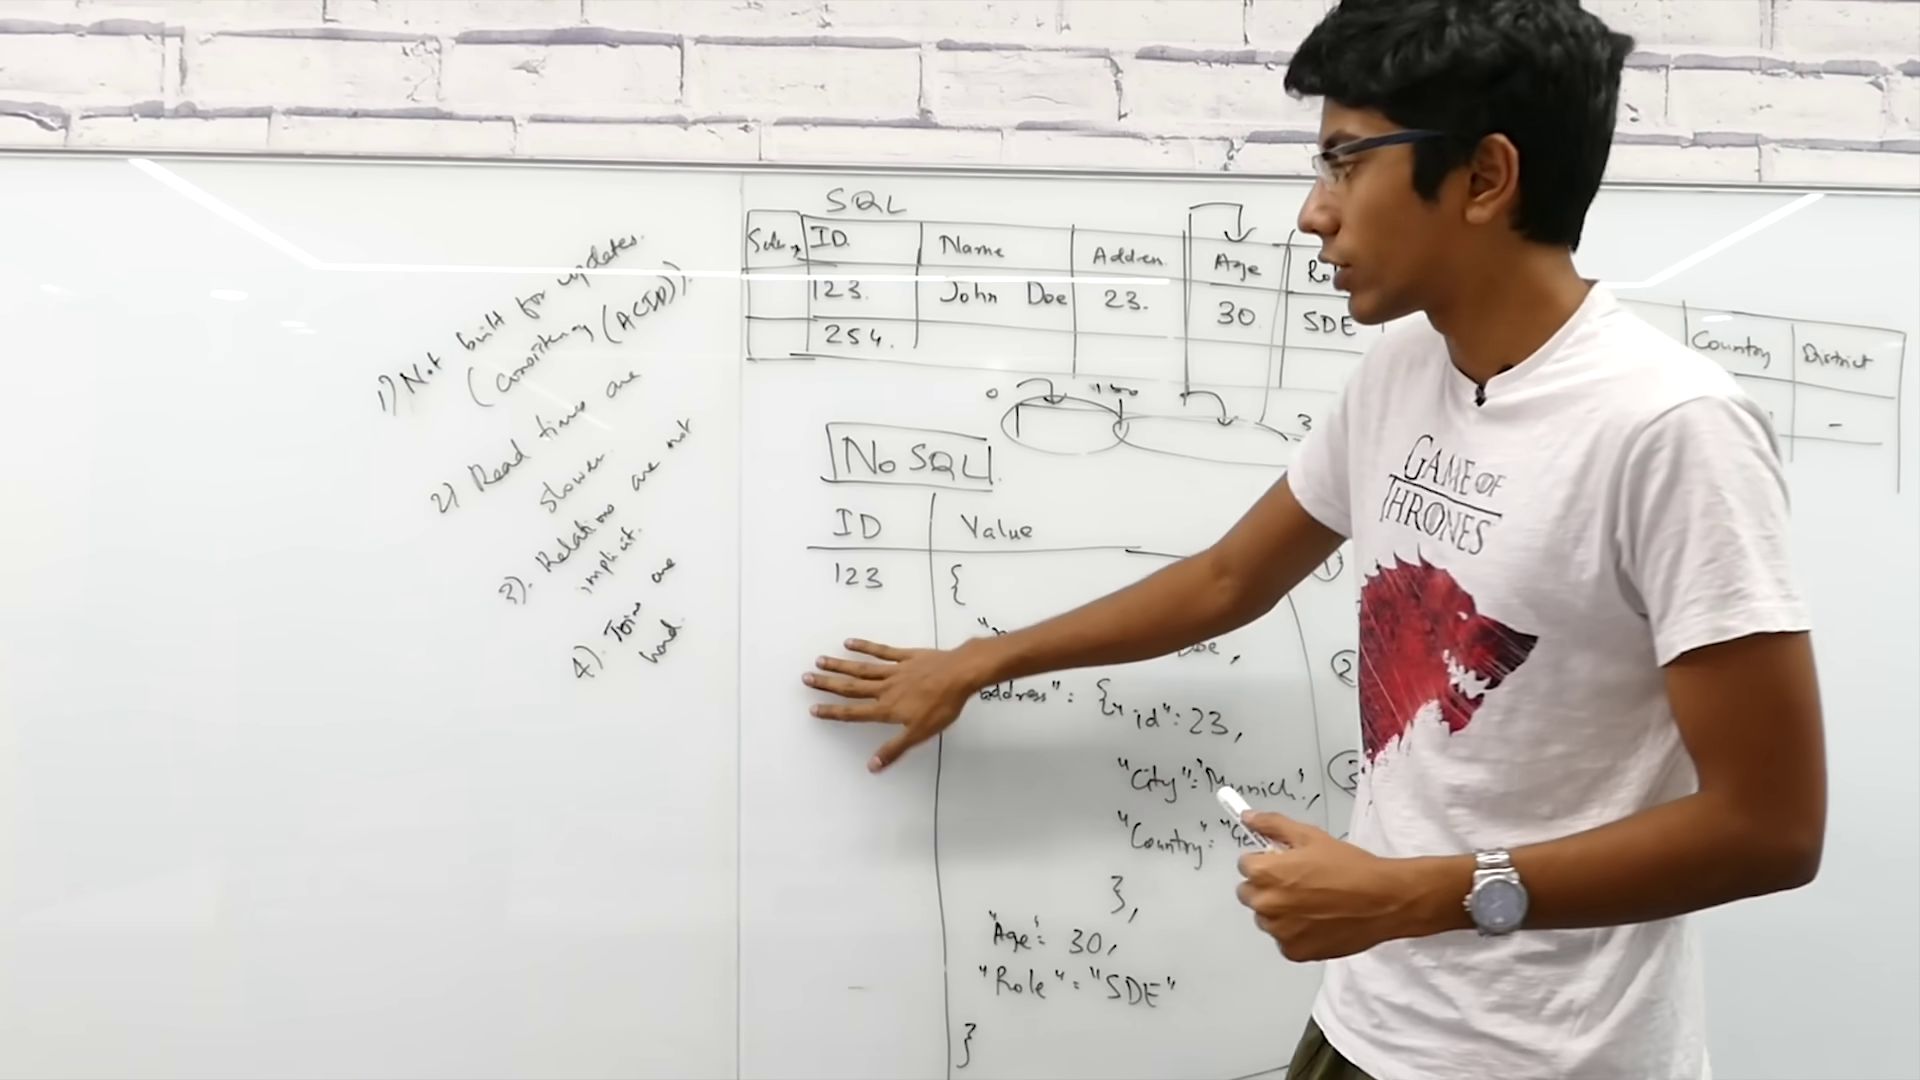 1) Not built for updates.
(Consistency (ACID)).
2) Read times are
slower.
3). Relations are not
implicit.
4). Joins are
hard.
SQL
ID Name Address Age
123. John Doe 23. 30 SDE
254.
Country District
-
0
3
NoSQL
ID Value
123 {
address": {"id": 23,
"City": "Munich",
"Country":
},
"Age": 30,
"Role" : "SDE"
}
1
2
3
GAME OF
THRONES